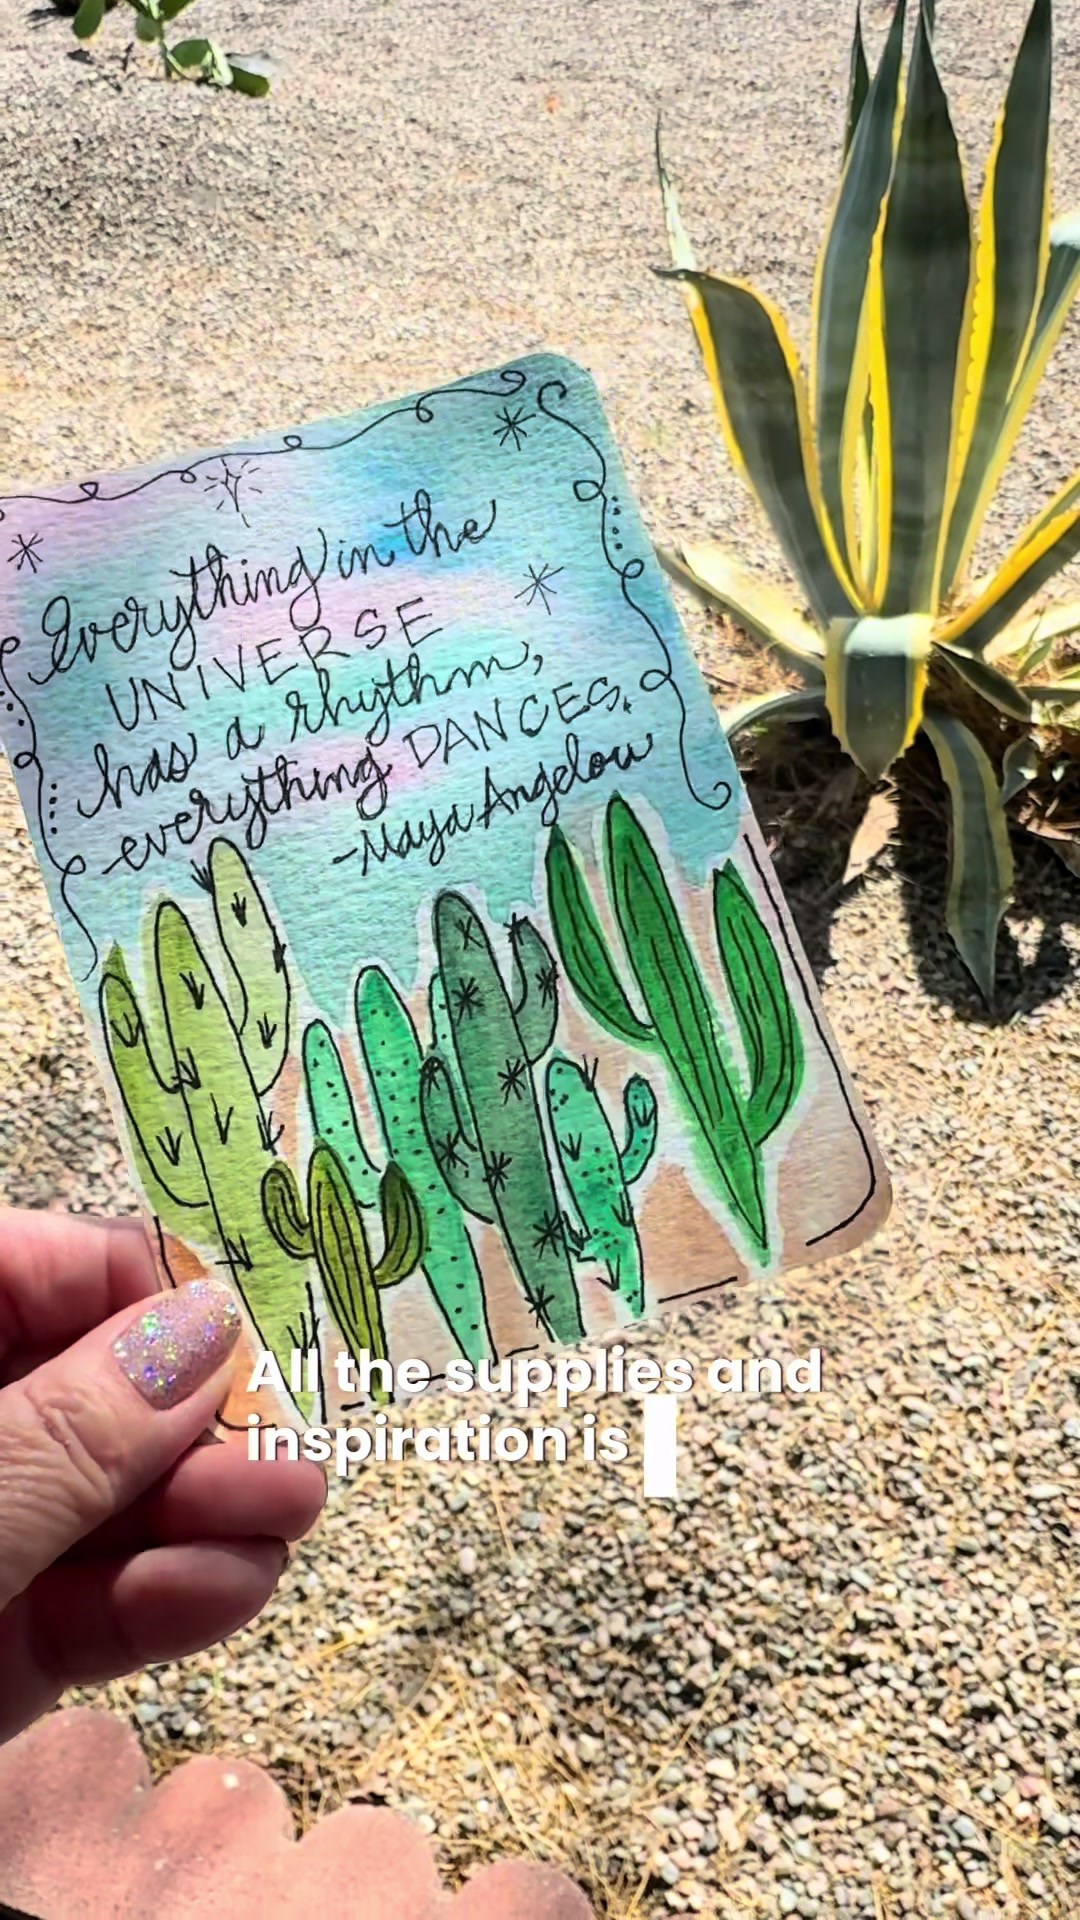 Everything in the
UNIVERSE
has a rhythm,
everything DANCES.
-Maya Angelou
All the supplies and
inspiration is